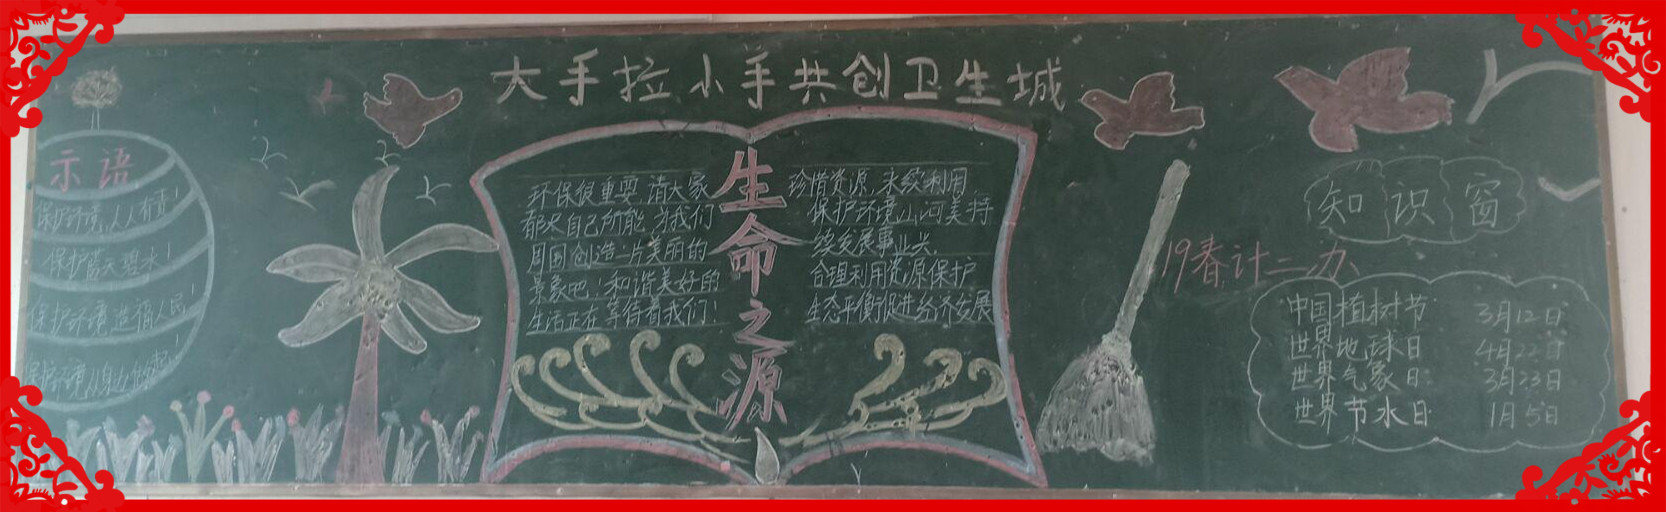 大手拉小手共创卫生城
示语
保护环境,人人有责!
保护蓝天碧水!
保护环境造福人民!
保护环境从身边做起!
环保很重要,请大家
都尽自己所能,为我们
周围创造一片美丽的
景象吧!和谐美好的
生活正在等待着我们!
生命之源
珍惜资源,永续利用
保护环境山河美持
续发展事业兴.
合理利用资源保护
生态平衡促进经济发展
19春计二办
知识窗
中国植树节 3月12日
世界地球日 4月22日
世界气象日 3月23日
世界节水日 1月5日